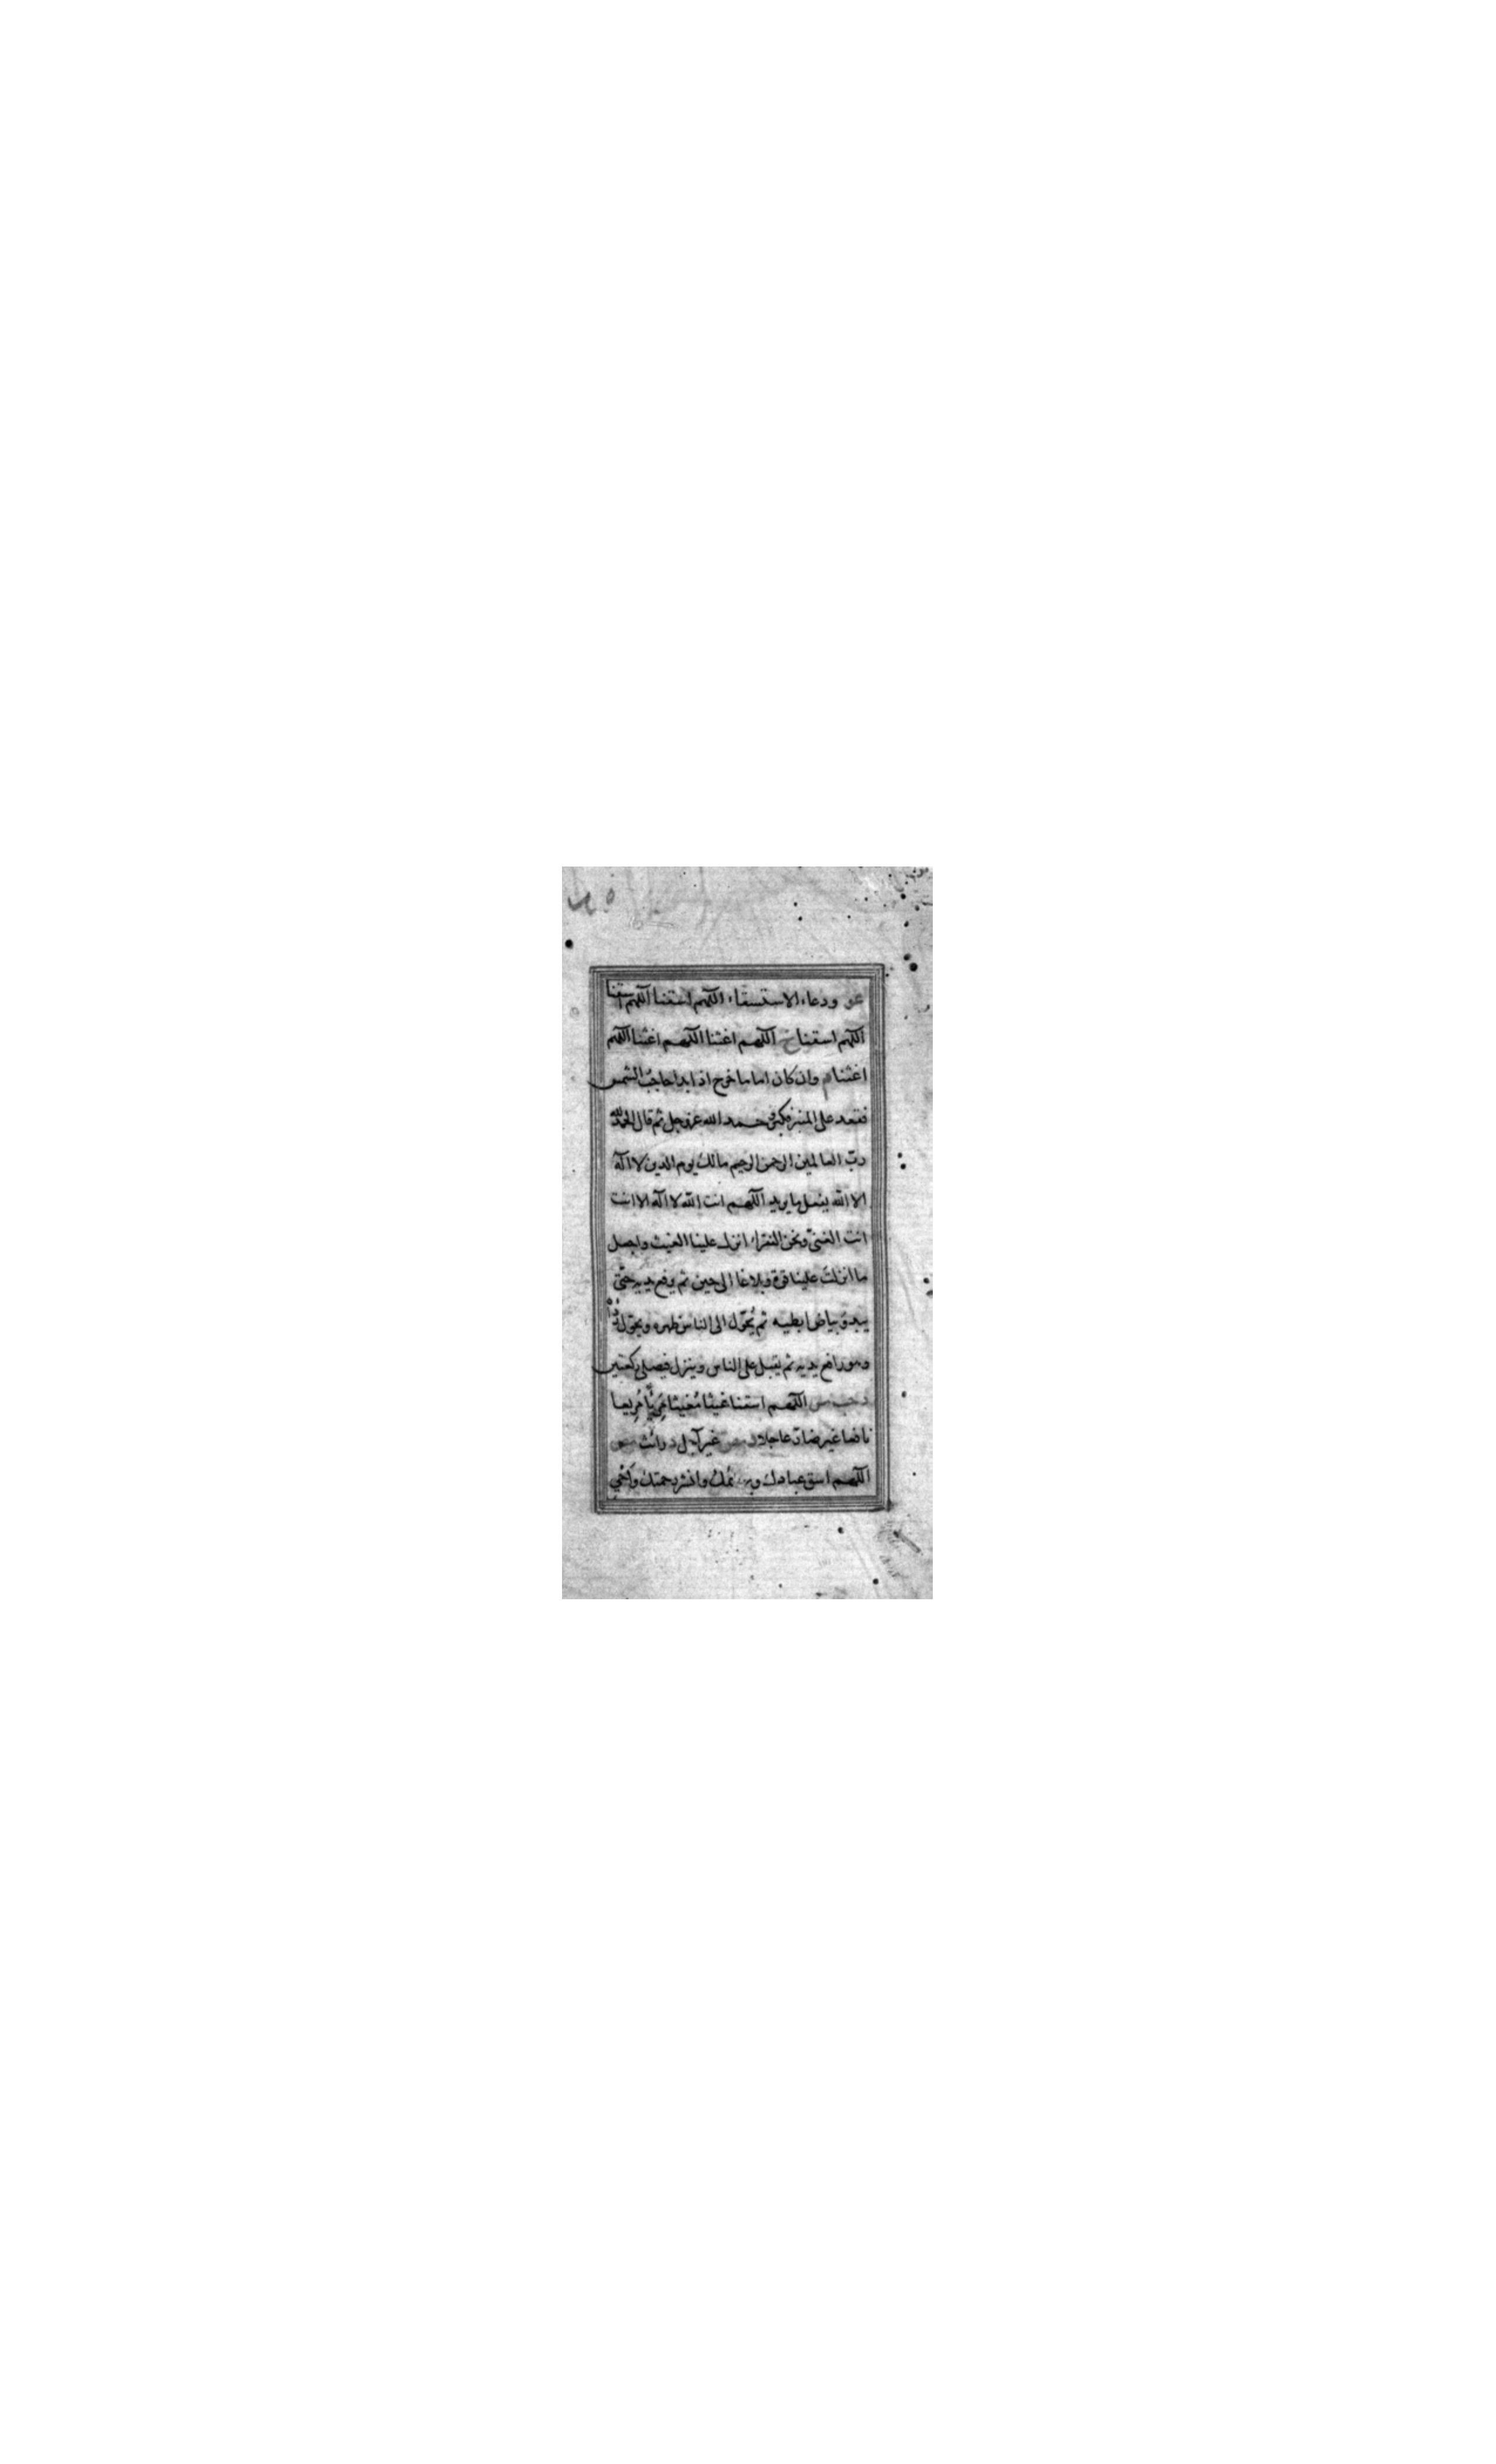 عو ودعاء الاستسقاء اللهم اسقنا اللهم اسقنا
اللهم اسقنا خ اللهم اغثنا اللهم اغثنا اللهم
اغثنا م وان كان اماما خرج اذا بدا حاجبُ الشمس
فقعد على المنبر فكبر وحمد الله عزوجل ثم قال الحمد لله
ربّ العالمين الرحمن الرحيم مالك يوم الدين لا اله
الا الله يفعل ما يريد اللهم انت الله لا اله الا انت
انت الغنىّ ونحن الفقراء انزل علينا الغيث واجعل
ما انزلتَ علينا قوة وبلاغا الى حين ثم يرفع يديه حتّى
يبدوَ بياض ابطيه ثم يُحَوّل الى الناس ظهره ويحوّل رداءه
وهو رافع يديه ثم يقبل على الناس وينزل فيصلى ركعتين
د حب مس اللهم اسقنا غيثا مُغيثا مَرِيًّا مُرِيعا
نافعا غير ضارّ عاجلا د مص غير آجل د رائث مص
اللهم اسق عبادك وبهائمك وانشر رحمتك وَاَحْيِ